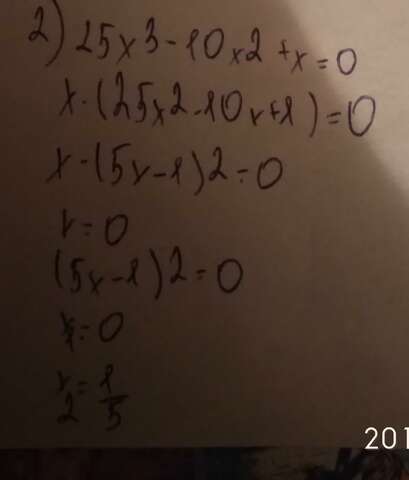 2) 25x3-10x2+x=0
x·(25x2-10x+1)=0
x·(5x-1)2=0
x=0
(5x-1)2=0
x1=0
x2=1/5
201